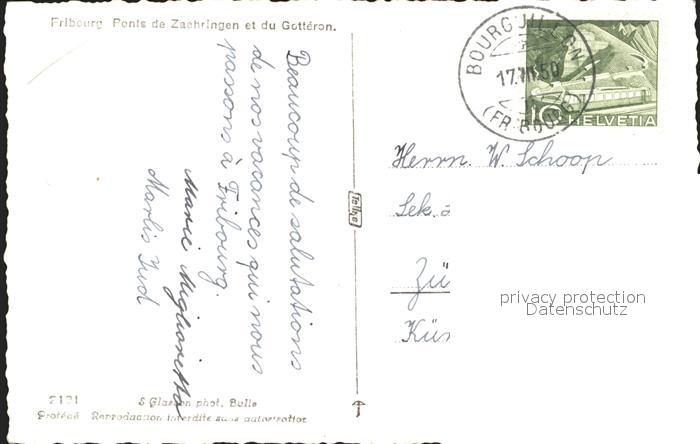 Fribourg Ponts de Zaehringen et du Gottéron.
Beaucoup de salutations
de nos vacances qui nous
passons à Fribourg.
Marie Miglioretto
Marlis Jud
2121
S Glasson phot. Bulle
Protégé Reproduction interdite sans autorisation
BOURGUILLON
(FRIBOURG)
10 HELVETIA
Herrn. W. Schoop
Sek.
Zü
Küs
privacy protection
Datenschutz